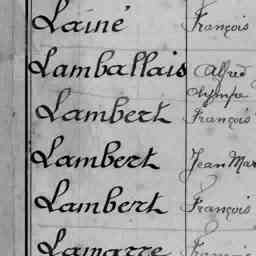 Lainé François
Lamballais Alfred
Olympe
Lambert François
Lambert Jean Mar
Lambert François
Lamarre François